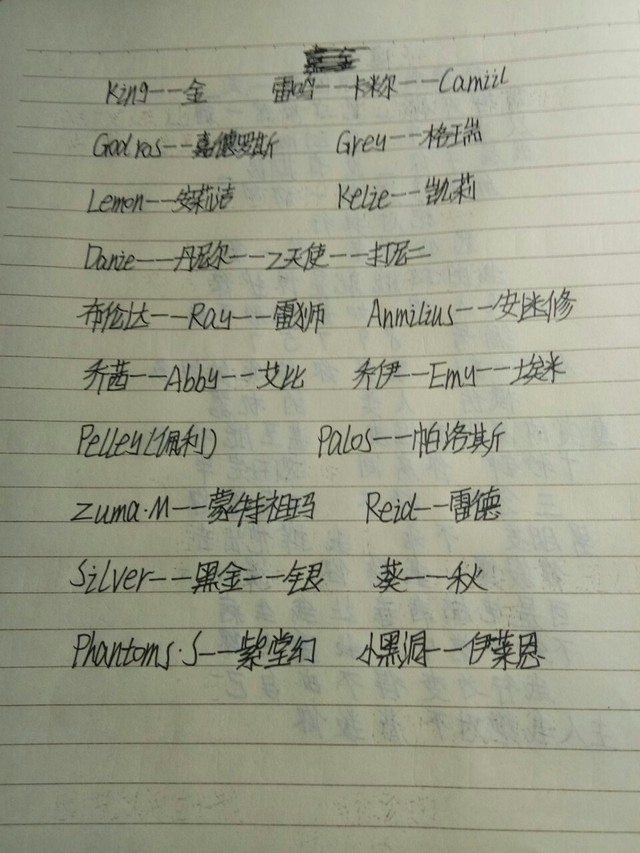 King——金 雷鸣——卡米尔——Camiil
Godros——嘉德罗斯 Grey——格瑞
Lemon——安莉洁 Kelie——凯莉
Danie——丹尼尔——Z天使——打尼二
布伦达——Ray——雷狮 Anmilius——安迷修
乔茜——Abby——艾比 乔伊——Emy——埃米
Pelley(佩利) Palos——帕洛斯
Zuma·M——蒙特祖玛 Reid——雷德
Silver——黑金——银 葵——秋
Phantoms·S——紫堂幻 小黑洞——伊莱恩